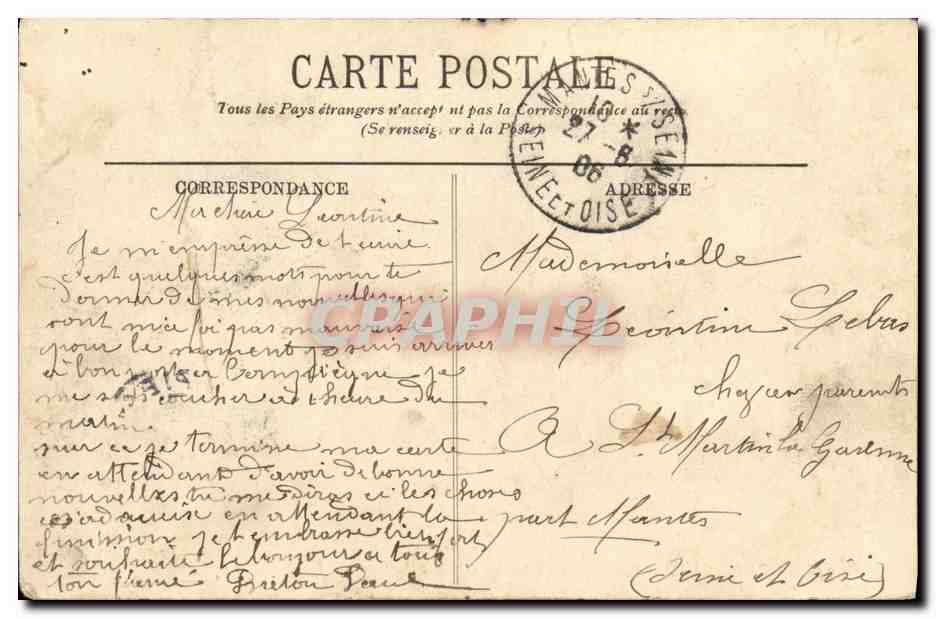 CARTE POSTALE
Tous les Pays étrangers n'accept nt pas la Correspondance au recto
(Se renseig er à la Poste)
MANTES S/SEINE
10 *
27 -8
06
SEINE ET OISE
CORRESPONDANCE
Ma chère Léontine
Je m'empresse de t'ecrire
c'est quelques mots pour te
donner de mes nouvelles qui
sont ma foi pas mauvaise
pour le moment je suis arriver
a bon port a Compiègne je
me suis coucher a 1 heure du
matin
sur ce je termine ma carte
en attendant d'avoir de bonne
nouvelles tu me diras si les choses
en attendant la
permission je t'embrasse bien fort
et souhaite le bonjour a tous
ton fiancé Breton Paul
ADRESSE
Mademoiselle
Léontine Lebas
chez ses parents
A St Martin la Garenne
part Mantes
(Seine et Oise)
CRAPHIL